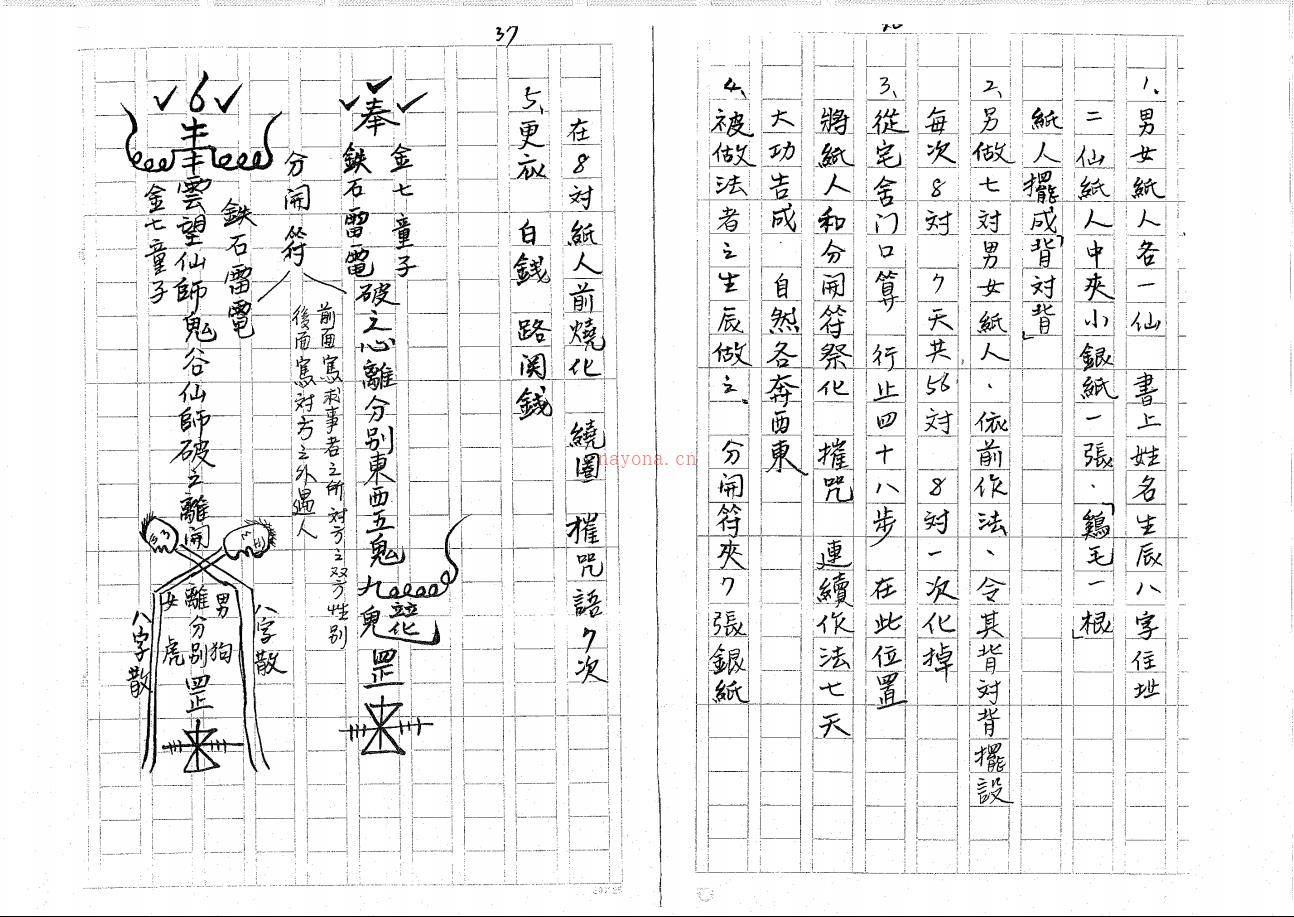 1、男女紙人各一仙 書上姓名生辰八字住址
二仙紙人中夾小銀紙一張．「鷄毛一根」
紙人擺成「背対背」
2、另做七対男女紙人、依前作法、令其背対背擺設
每次8対 7天共56対 8対一次化掉
3、從宅舍门口算 行止四十八步 在此位置
將紙人和分開符祭化 摧咒 連續作法七天
大功告成．自然各奔西東
4、被做法者之生辰做之、分開符夾7張銀紙
37
在8対紙人前燒化 繞圈 摧咒語7次
5、更衣 白錢 路関錢
金七童子
奉
鉄石雷電
破之心離分别東西五鬼九鬼
罡
分開符
前面寫求事者之所対方之双方性别
後面寫対方之外遇人
6
鉄石雷電
雲望仙師鬼谷仙師破之離開
離分别罡
金七童子
男狗
女虎
八字散
八字散
nayona.cn